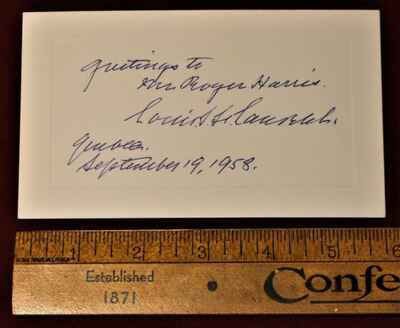 greetings to
Mr. Roger Harris.
Louis S.
Quebec.
September 19, 1958.
1 2 3 4 5 6
Established
1871
Confe